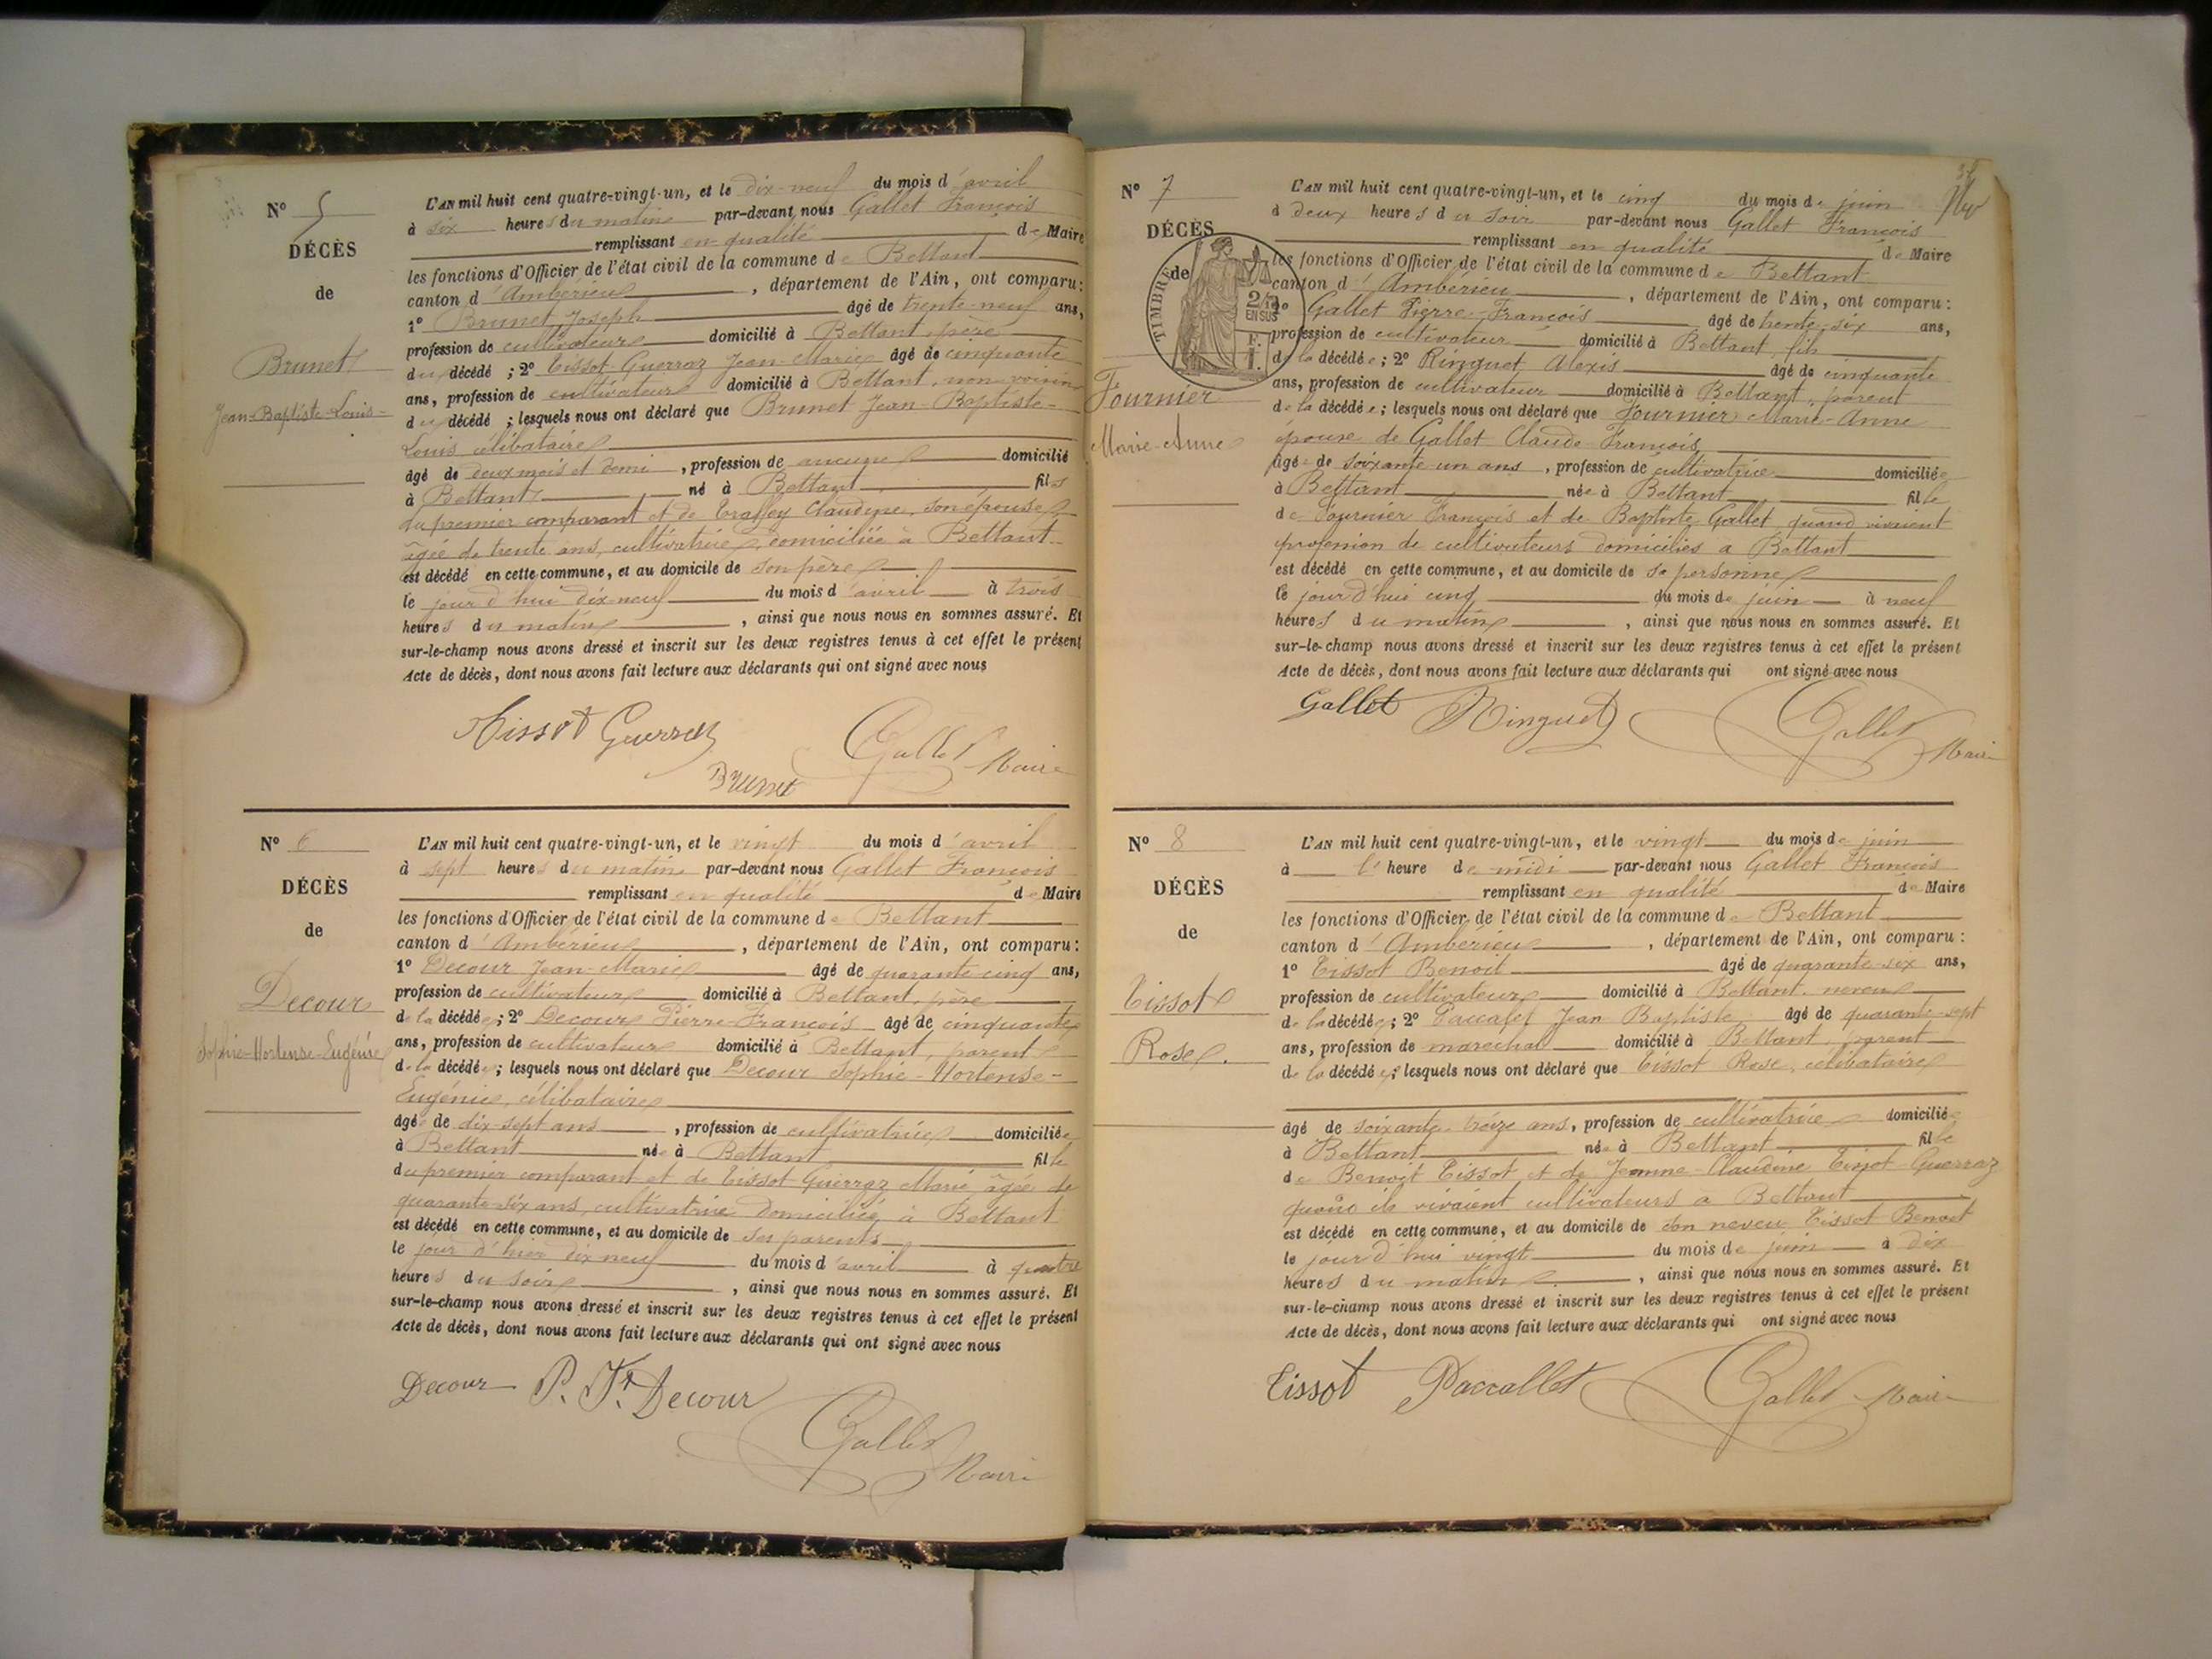 N° 5
DÉCÈS
de
Brunet
Jean-Baptiste-Louis-
L'AN mil huit cent quatre-vingt-un, et le dix-neuf du mois d'avril
à six heures du matin par-devant nous Gallet François
remplissant en qualité de Maire
les fonctions d'Officier de l'état civil de la commune de Bettant
canton d'Ambérieu, département de l'Ain, ont comparu:
1° Brunet Joseph âgé de trente-neuf ans,
profession de cultivateur domicilié à Bettant, père
du décédé ; 2° Tissot-Guerraz Jean-Marie âgé de cinquante
ans, profession de cultivateur domicilié à Bettant, non voisin
du décédé ; lesquels nous ont déclaré que Brunet Jean-Baptiste-
Louis célibataire
âgé de deux mois et demi, profession de aucune domicilié
à Bettant né à Bettant fils
du premier comparant et de Claudine, son épouse
âgée de trente ans, cultivatrice, domiciliée à Bettant
est décédé en cette commune, et au domicile de son père
le jour d'hui dix-neuf du mois d'avril à trois
heures du matin, ainsi que nous nous en sommes assuré. Et
sur-le-champ nous avons dressé et inscrit sur les deux registres tenus à cet effet le présent
Acte de décès, dont nous avons fait lecture aux déclarants qui ont signé avec nous
Tissot Guerraz
Brunet
Gallet Maire
N° 6
DÉCÈS
de
Decour
Sophie-Hortense-Eugénie
L'AN mil huit cent quatre-vingt-un, et le vingt du mois d'avril
à sept heures du matin par-devant nous Gallet François
remplissant en qualité de Maire
les fonctions d'Officier de l'état civil de la commune de Bettant
canton d'Ambérieu, département de l'Ain, ont comparu:
1° Decour Jean-Marie âgé de quarante cinq ans,
profession de cultivateur domicilié à Bettant, père
de la décédée; 2° Decour Pierre-François âgé de cinquante
ans, profession de cultivateur domicilié à Bettant, parent
de la décédée; lesquels nous ont déclaré que Decour Sophie-Hortense-
Eugénie, célibataire
âgée de dix-sept ans, profession de cultivatrice domiciliée
à Bettant née à Bettant fille
du premier comparant et de Tissot Guerraz Marie âgée de
quarante-six ans, cultivatrice domiciliée à Bettant
est décédé en cette commune, et au domicile de ses parents
le jour d'hier dix neuf du mois d'avril à quatre
heures du soir, ainsi que nous nous en sommes assuré. Et
sur-le-champ nous avons dressé et inscrit sur les deux registres tenus à cet effet le présent
Acte de décès, dont nous avons fait lecture aux déclarants qui ont signé avec nous
Decour P. Fs. Decour
Gallet Maire
N° 7
DÉCÈS
de
TIMBRE
2/10
EN SUS
F.
1.
Fournier
Marie-Anne
L'AN mil huit cent quatre-vingt-un, et le cinq du mois de juin
à deux heures du soir par-devant nous Gallet François
remplissant en qualité de Maire
les fonctions d'Officier de l'état civil de la commune de Bettant
canton d'Ambérieu, département de l'Ain, ont comparu:
1° Gallet Pierre-François âgé de trente-six ans,
profession de cultivateur domicilié à Bettant, fils
de la décédée; 2° Ringuet Alexis âgé de cinquante
ans, profession de cultivateur domicilié à Bettant, parent
de la décédée; lesquels nous ont déclaré que Fournier Marie-Anne
épouse de Gallet Claude-François
âgée de soixante-un ans, profession de cultivatrice domiciliée
à Bettant née à Bettant fille
de Fournier François et de Baptiste Gallet, quand vivaient
profession de cultivateurs domiciliés à Bettant
est décédé en cette commune, et au domicile de sa personne
le jour d'hui cinq du mois de juin à neuf
heures du matin, ainsi que nous nous en sommes assuré. Et
sur-le-champ nous avons dressé et inscrit sur les deux registres tenus à cet effet le présent
Acte de décès, dont nous avons fait lecture aux déclarants qui ont signé avec nous
Gallet Ringuet Gallet Maire
N° 8
DÉCÈS
de
Tissot
Rose.
L'AN mil huit cent quatre-vingt-un, et le vingt du mois de juin
à l'heure de midi par-devant nous Gallet François
remplissant en qualité de Maire
les fonctions d'Officier de l'état civil de la commune de Bettant
canton d'Ambérieu, département de l'Ain, ont comparu:
1° Tissot Benoit âgé de quarante-six ans,
profession de cultivateur domicilié à Bettant, neveu
de la décédée; 2° Paccalet Jean Baptiste âgé de quarante-sept
ans, profession de maréchal domicilié à Bettant, parent
de la décédée; lesquels nous ont déclaré que Tissot Rose, célibataire
âgé de soixante-treize ans, profession de cultivatrice domiciliée
à Bettant née à Bettant fille
de Benoit Tissot et de Jeanne-Claudine Tissot-Guerraz
quand ils vivaient cultivateurs à Bettant
est décédé en cette commune, et au domicile de son neveu Tissot Benoit
le jour d'hui vingt du mois de juin à dix
heures du matin, ainsi que nous nous en sommes assuré. Et
sur-le-champ nous avons dressé et inscrit sur les deux registres tenus à cet effet le présent
Acte de décès, dont nous avons fait lecture aux déclarants qui ont signé avec nous
Tissot Paccallet Gallet Maire